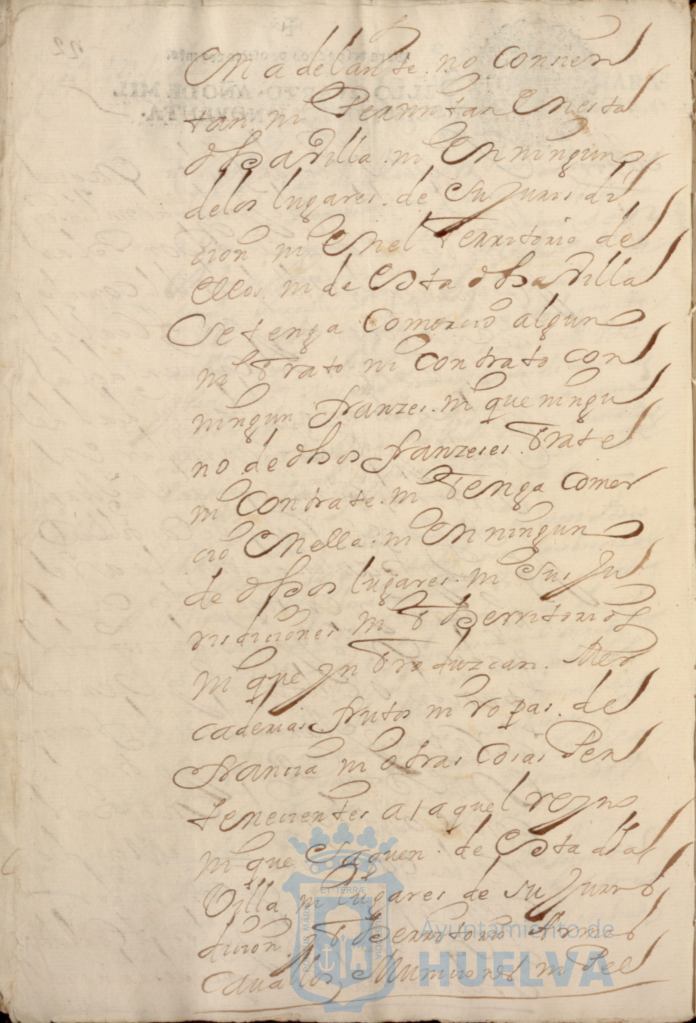 En adelante no consien
tan ni Permitan Enesta
dha Villa ni En ningun
delos lugares de Su Juris di
cion ni Enel Territorio de
ellos ni de Esta dha Villa
Se tenga Comercio algun
ni Trato ni Contrato con
ningun franzes ni que ningu
no de dhos franzeses Trate
ni Contrate ni Tenga Comer
cio Enella ni En ningun
de dhos lugares ni Sus Ju
risdiciones ni Territorios
ni que Introduzcan Mer
caderias frutos ni ropas de
francia ni otras Cosas Per
tenecientes a aquel reyno
ni que Saquen de Esta dha
Villa ni lugares de su Juris
dicion y Territorio Armas
Cauallos Municiones ni Pel
Ayuntamiento de
HUELVA